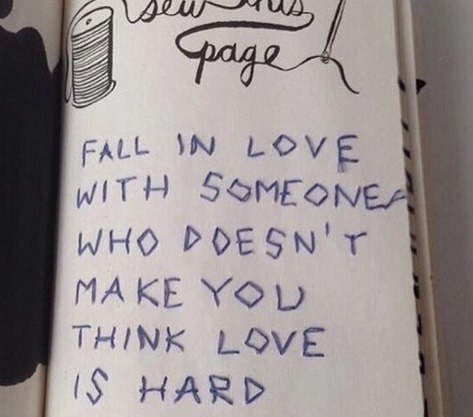 sew this
page
FALL IN LOVE
WITH SOMEONE
WHO DOESN'T
MAKE YOU
THINK LOVE
IS HARD